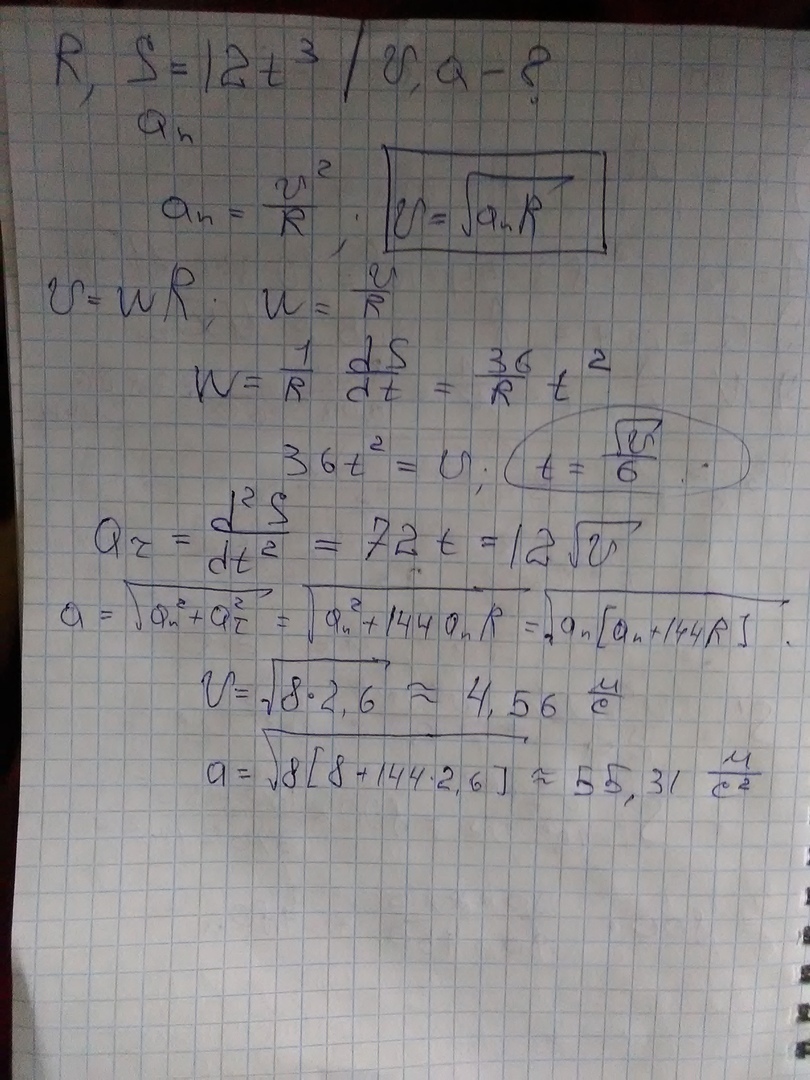 R, S = 12t³ / υ, a - ?
aₙ
aₙ = υ²/R ; υ = √(aₙR)
υ = ωR; ω = υ/R
ω = 1/R dS/dt = 36/R t²
36t² = υ; t = √υ/6 .
a_τ = d²S/dt² = 72t = 12√υ
a = √(aₙ² + a_τ²) = √(aₙ² + 144aₙR) = √(aₙ[aₙ + 144R]) .
υ = √(8·2,6) ≈ 4,56 м/с
a = √(8[8 + 144·2,6]) ≈ 55,31 м/с²